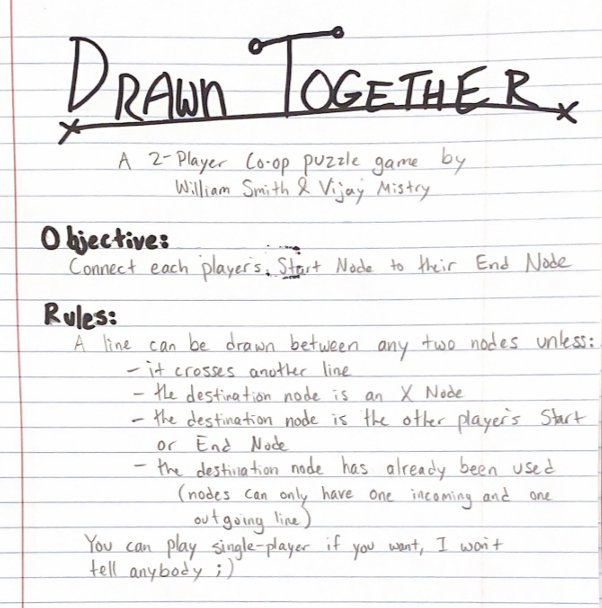 DRAWN TOGETHER
A 2-Player Co-op puzzle game by
William Smith & Vijay Mistry
Objective:
Connect each player's Start Node to their End Node
Rules:
A line can be drawn between any two nodes unless:
- it crosses another line
- the destination node is an X Node
- the destination node is the other player's Start
or End Node
- the destination node has already been used
(nodes can only have one incoming and one
outgoing line)
You can play single-player if you want, I won't
tell anybody ;)